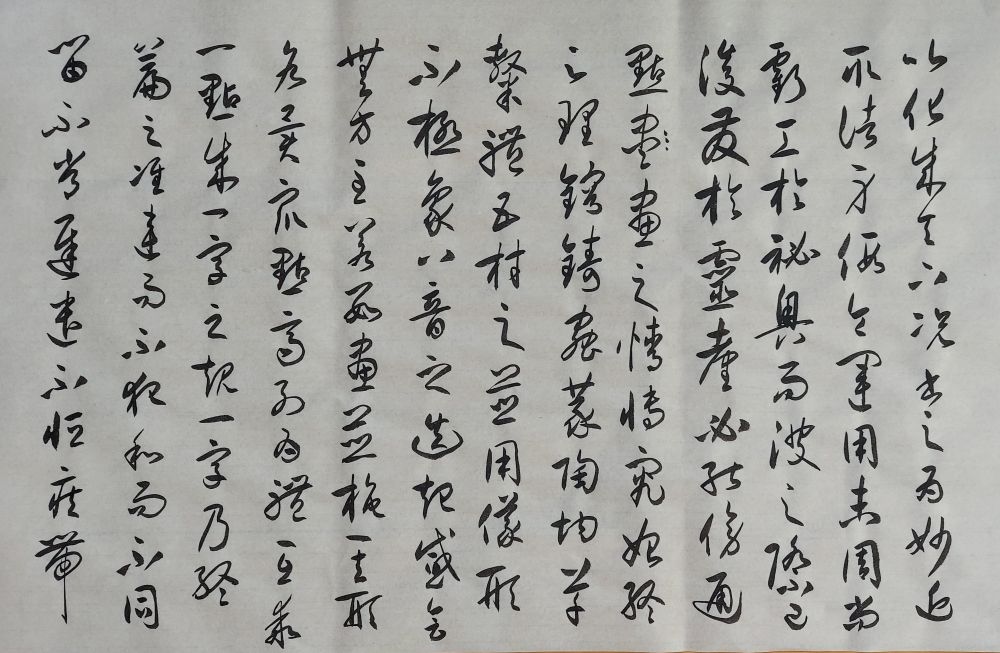 以化成天下況書之為妙近
取諸身假令運用未周尚
虧工於祕奧而波之際已
浚發於靈臺必能傍通
點盡畫之情博究始終
之理鎔鑄蟲篆陶均草
隸體五材之並用儀形
不極象八音之迭起感會
無方至若數畫並施其形
各異眾點齊列為體互乖
一點成一字之規一字乃終
篇之准違而不犯和而不同
留不常遲遣不恒疾帶